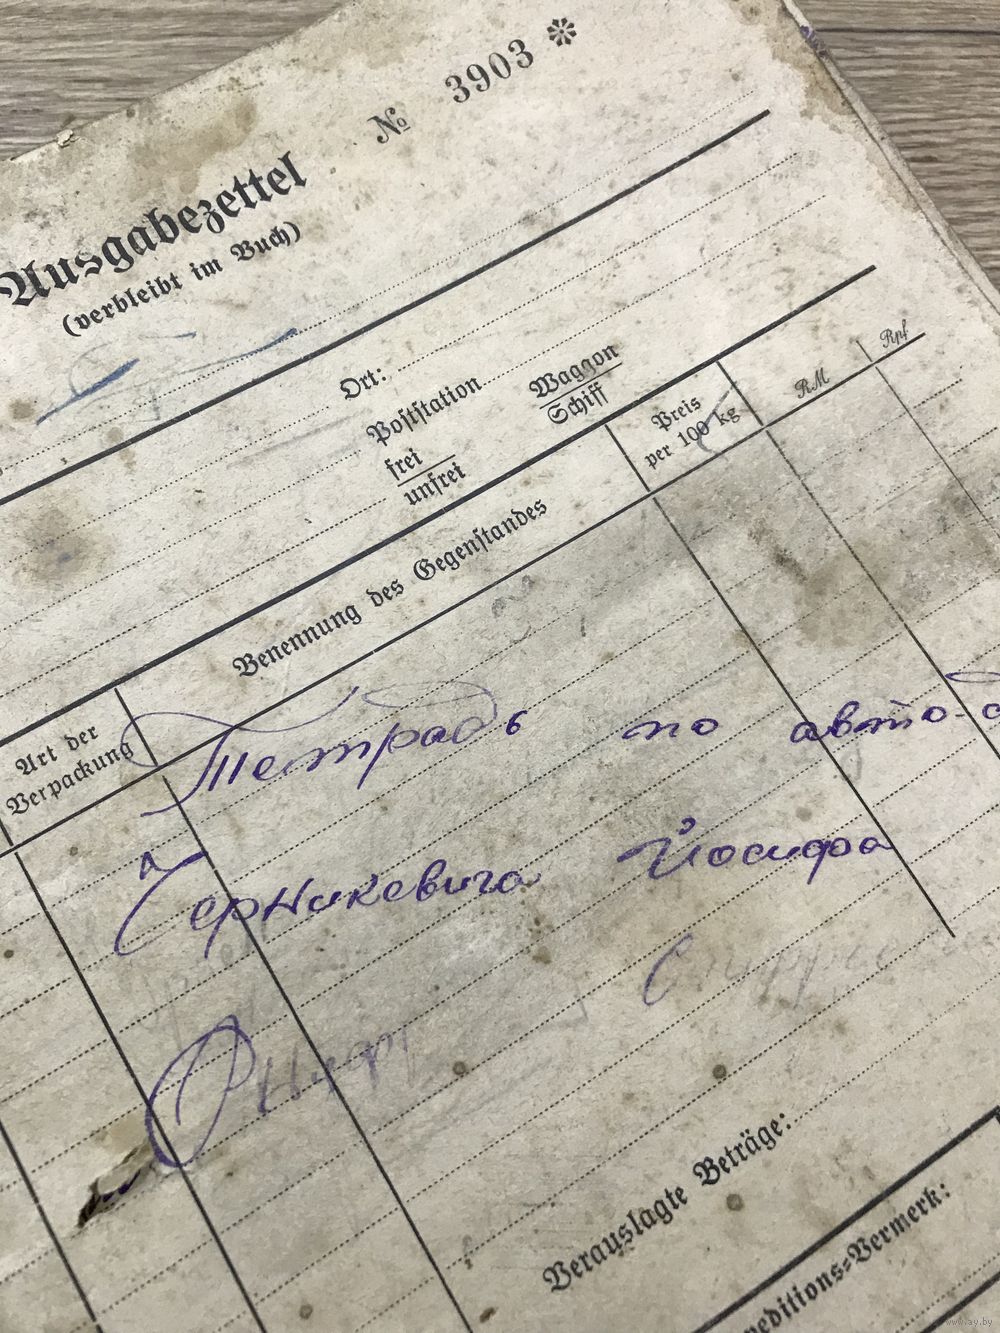 № 3903 ❊
Ausgabezettel
(verbleibt im Buch)
Ort:
Poststation
Waggon
Schiff
frei
unfrei
Preis
per 100 kg
RM
Rpf
Art der
Verpackung
Benennung des Gegenstandes
Тетрадь по авто-
Черникевича Йосифа
Verauslagte Beträge:
peditions-Vermerk:
www.ay.by